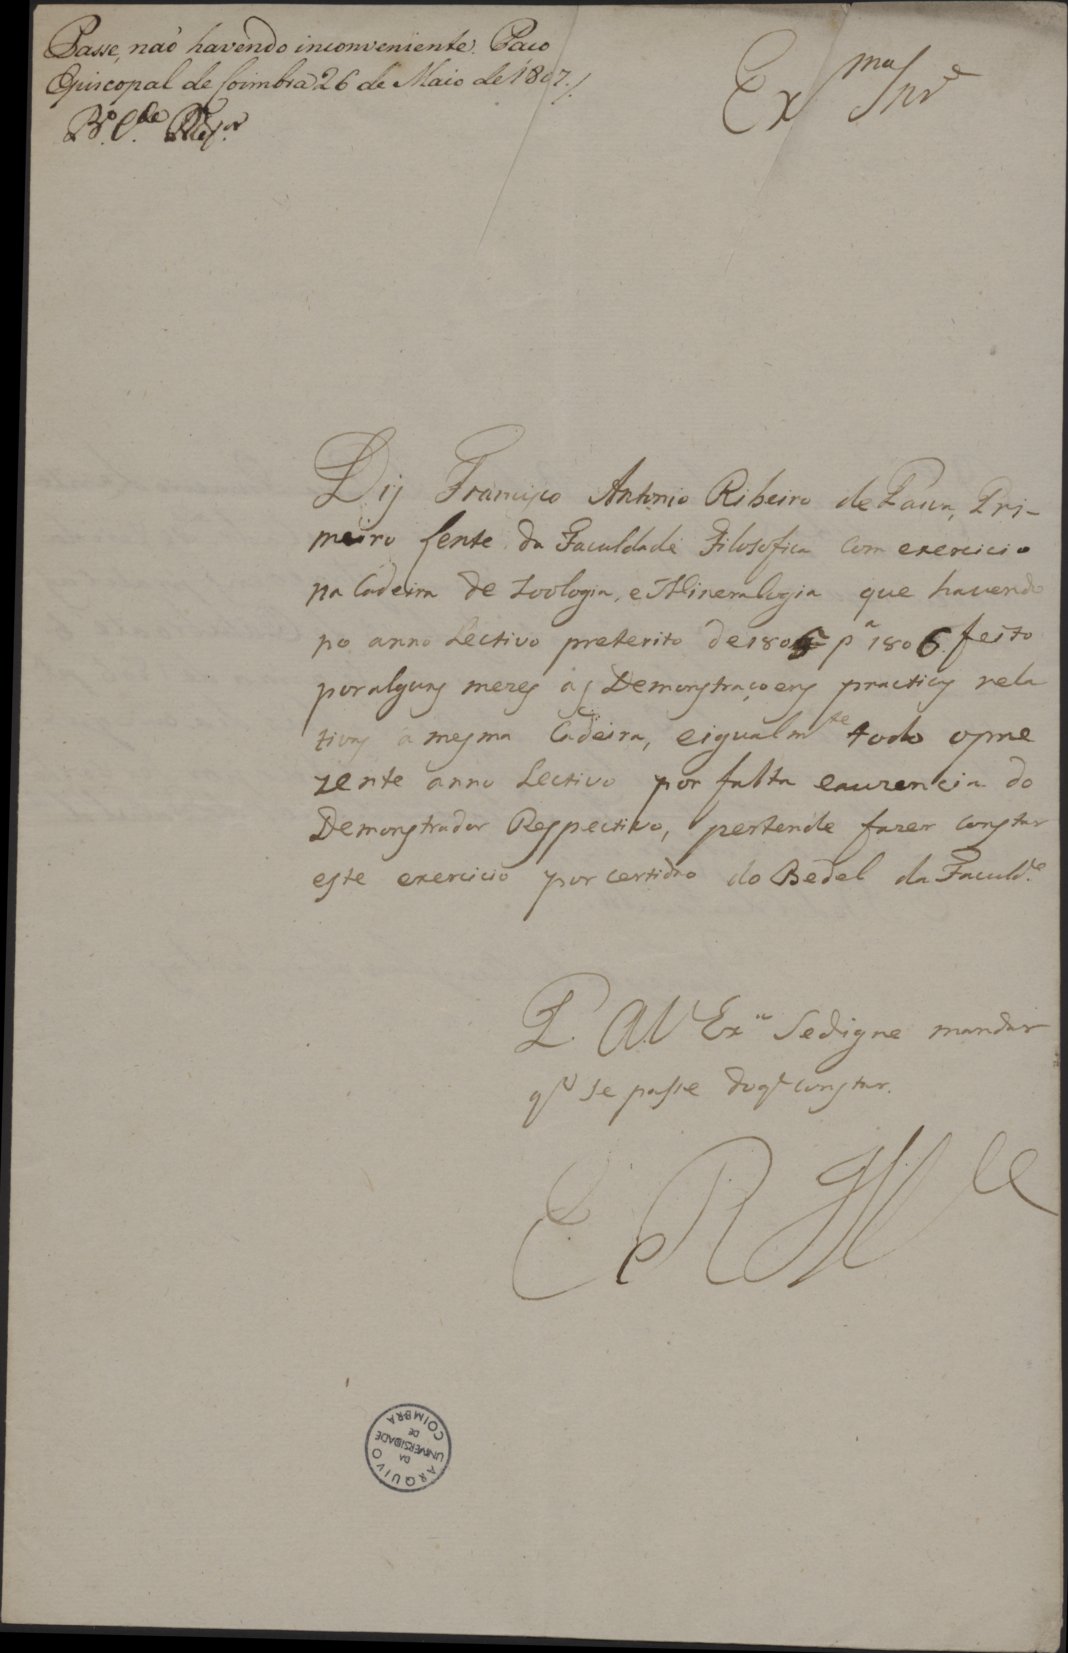 Passe, naõ havendo inconveniente. Paco
Episcopal de Coimbra 26 de Maio de 1807./
B.º C.de R.or
Ex.mo Snr.e
Diz Francisco Antonio Ribeiro de Paiva, Pri-
meiro Lente da Faculdade Filosofica com exercicio
na Cadeira de Zoologia, e Mineralogia que havendo
no anno Lectivo preterito de 1805 pª 1806 feito
por alguns mezes as Demonstraçoens practicas rela
tivas a mesma Cadeira, e igualm.te todo o pre
zente anno Lectivo por falta e auzencia do
Demonstrador Respectivo, pertende fazer constar
este exercicio por certidão do Bedel da Faculd.e
P. A V Ex.a Se digne mandar
q' se passe do q' constar.
E R M.ce
ARQUIVO
DA
UNIVERSIDADE
DE
COIMBRA